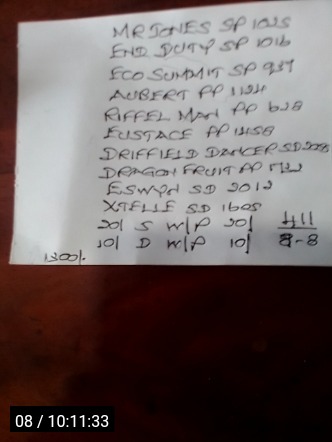 MR JONES SP 1025
END DUTY SP 1016
ECO SUMMIT SP 937
AUBERT PP 1124
RIFFEL MAN PP 628
EUSTACE PP 1458
DRIFFIELD DANCER SD 2028
DRAGON FRUIT PP
ESWYN SD 2012
XTELLE SD 1605
20/ S W/P 20/ 411
10/ D W/P 10/ 8-8
1300/.
08 / 10:11:33